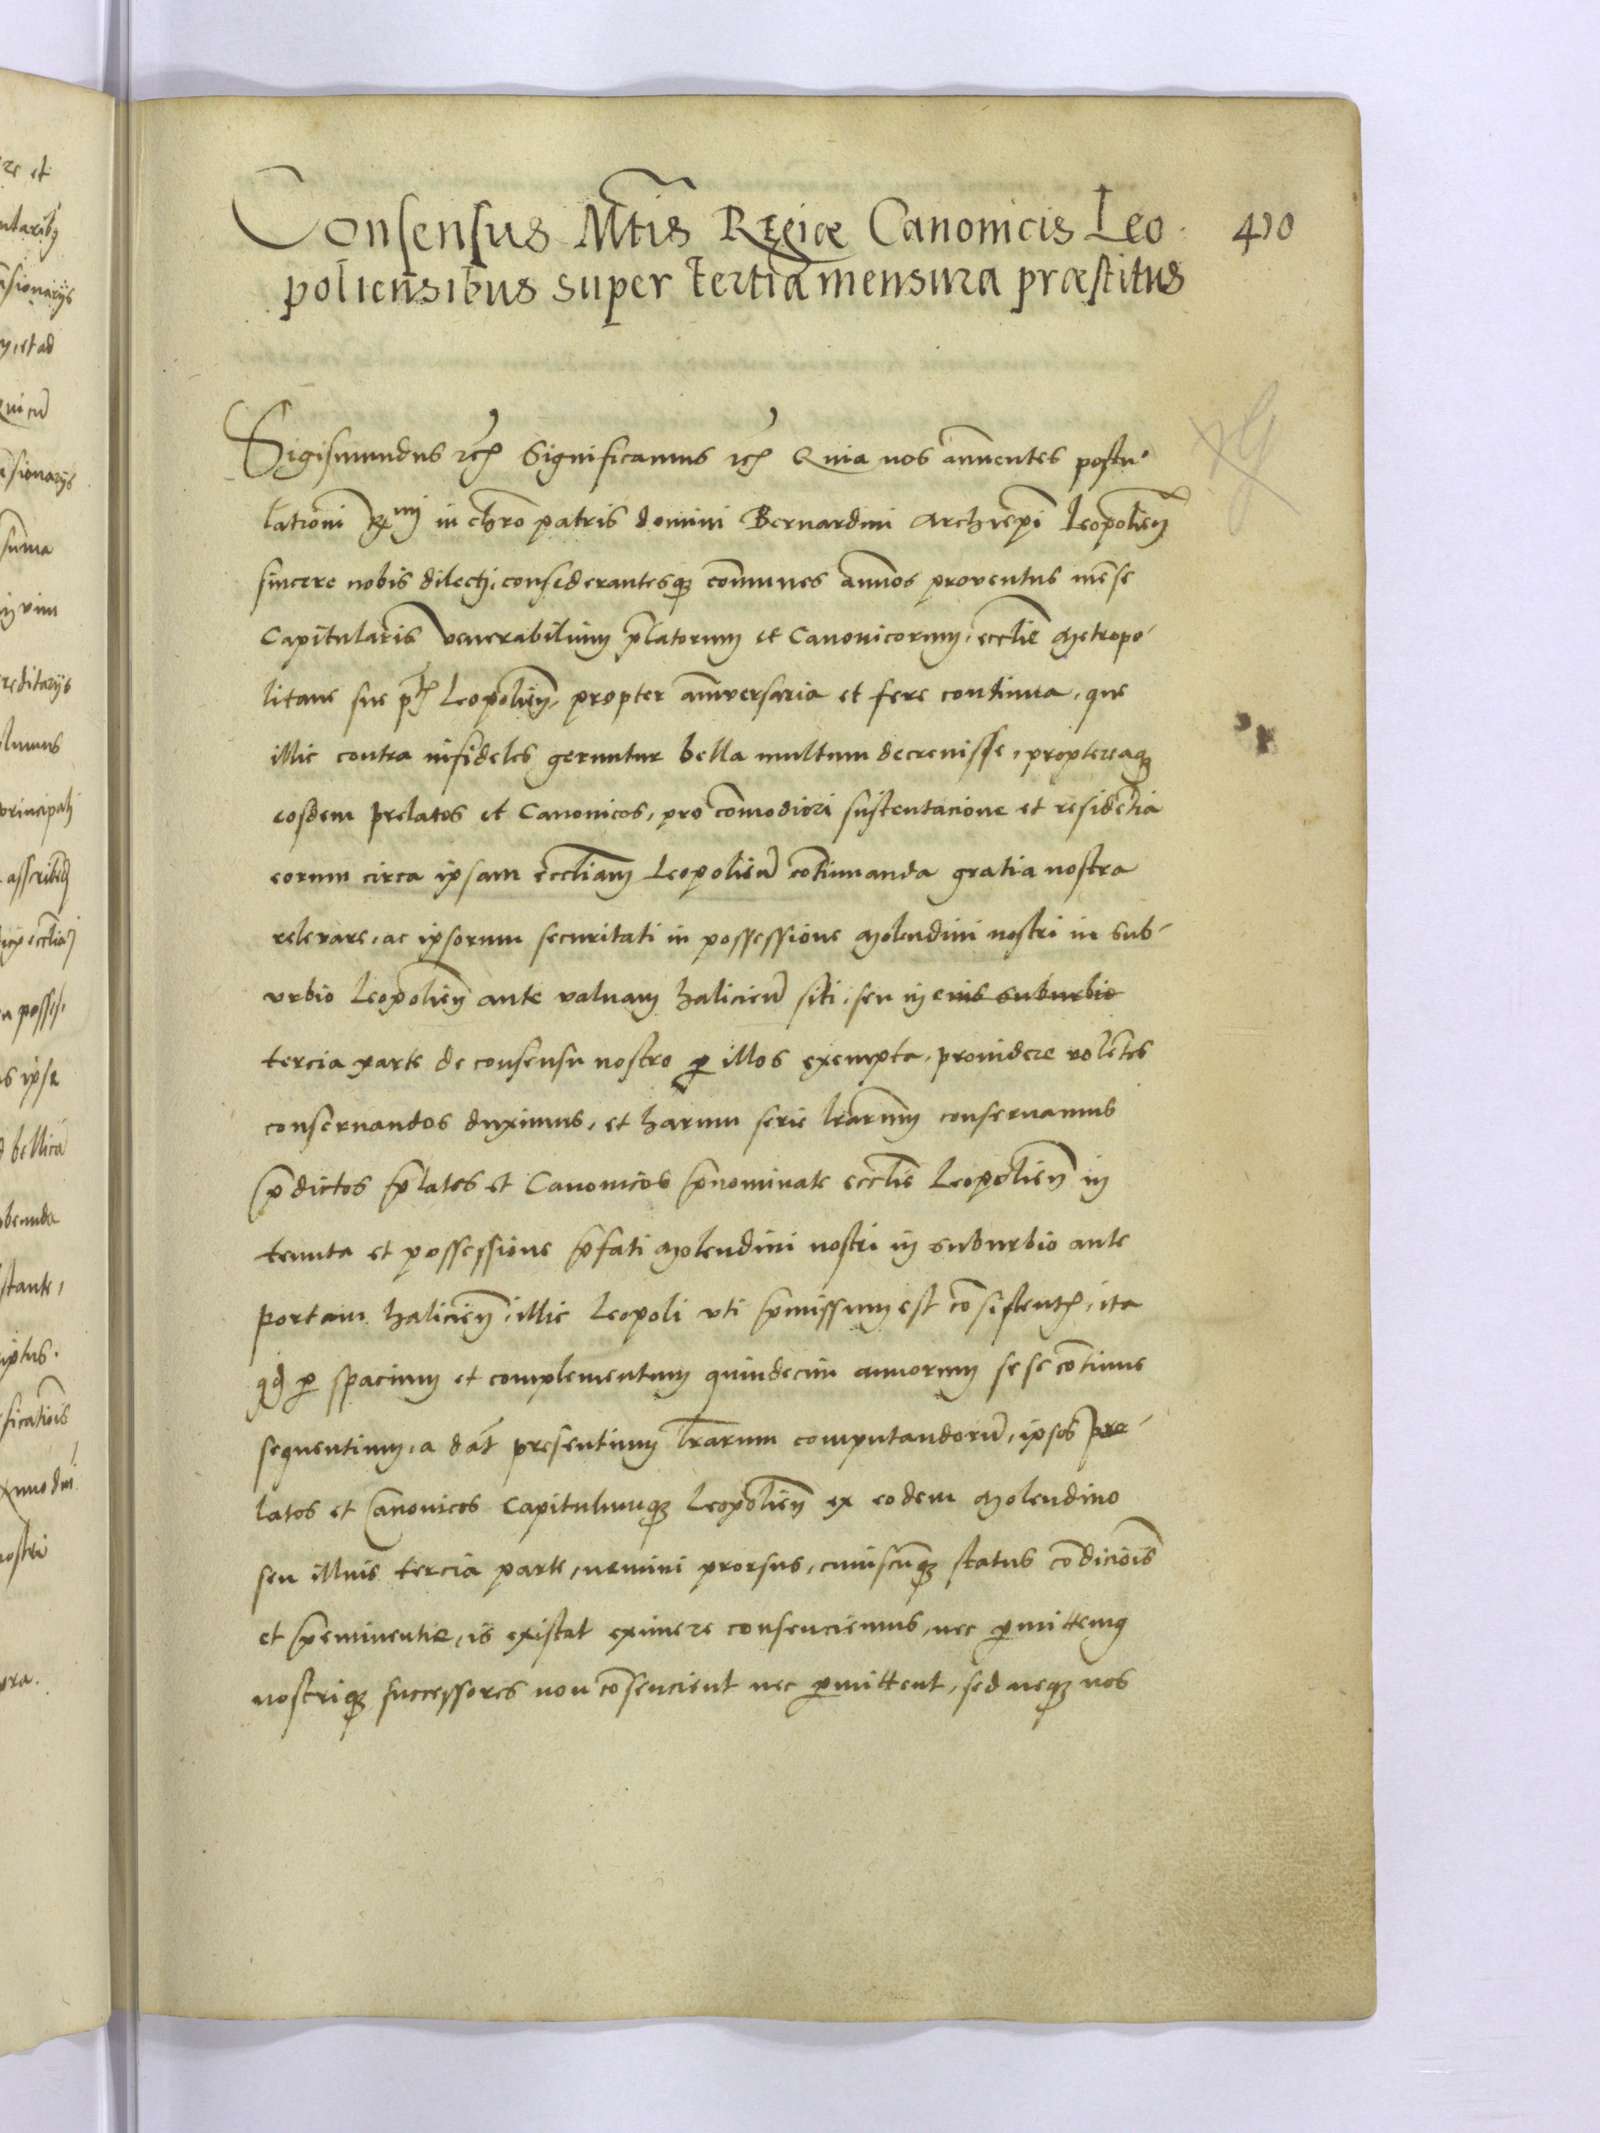 Consensus Mtis Regiæ Canonicis Leo
410
poliensibus super tertia mensura præstitus
Sigismundus etc Significamus etc Quia nos annuentes postu-
lationi Rmi in chro patris domini Bernardini Archiepi Leopolien
sincere nobis dilecti, consederantesq communes annos proventus mense
Capitularis venerabilium prlatorum et Canonicorum, ecclie Metropo-
litane sue Leopolien, propter anniversaria et fere continua, que
illic contra infideles geruntur bella multum decrevisse, proptereaq
eosdem prelatos et Canonicos, pro comodiori sustentacione et residetia
eorum circa ipsam eccliam Leopolien cotinuanda gratia nostra
relevare, ac ipsorum securitati in possessione Molendini nostri in sub-
urbio Leopolien ante valvam halicien siti, seu in eius suburbio
tercia parte de consensu nostro p illos exempta, providere voletes
conservandos duximus, et harum serie lrarum conservamus
pdictos plates et Canonicos pnominate ecclie Leopolien in
tenuta et possessione pfati Molendini nostri in suburbio ante
portam halicien, illic Leopoli uti pmissum est cosistent, ita
qd p spacium et complementum quindecim annorum sese cotinue
sequentium, a dat presentium lrarum computandoru, ipsos pre-
latos et Canonicos Capitulumq Leopolien ex eodem Molendino
seu illius tercia parte, nemini prorsus, cuiuscuq status codiciois
et peminentie, is existat eximere consenciemus, nec pmittemus
nostriq successores non cosencient nec pmittent, sed neq nos